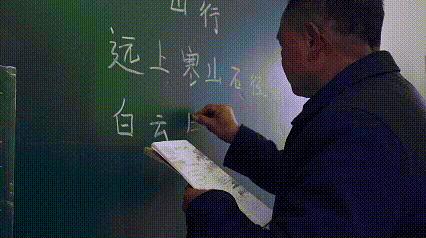 山行
远上寒山石径
白云